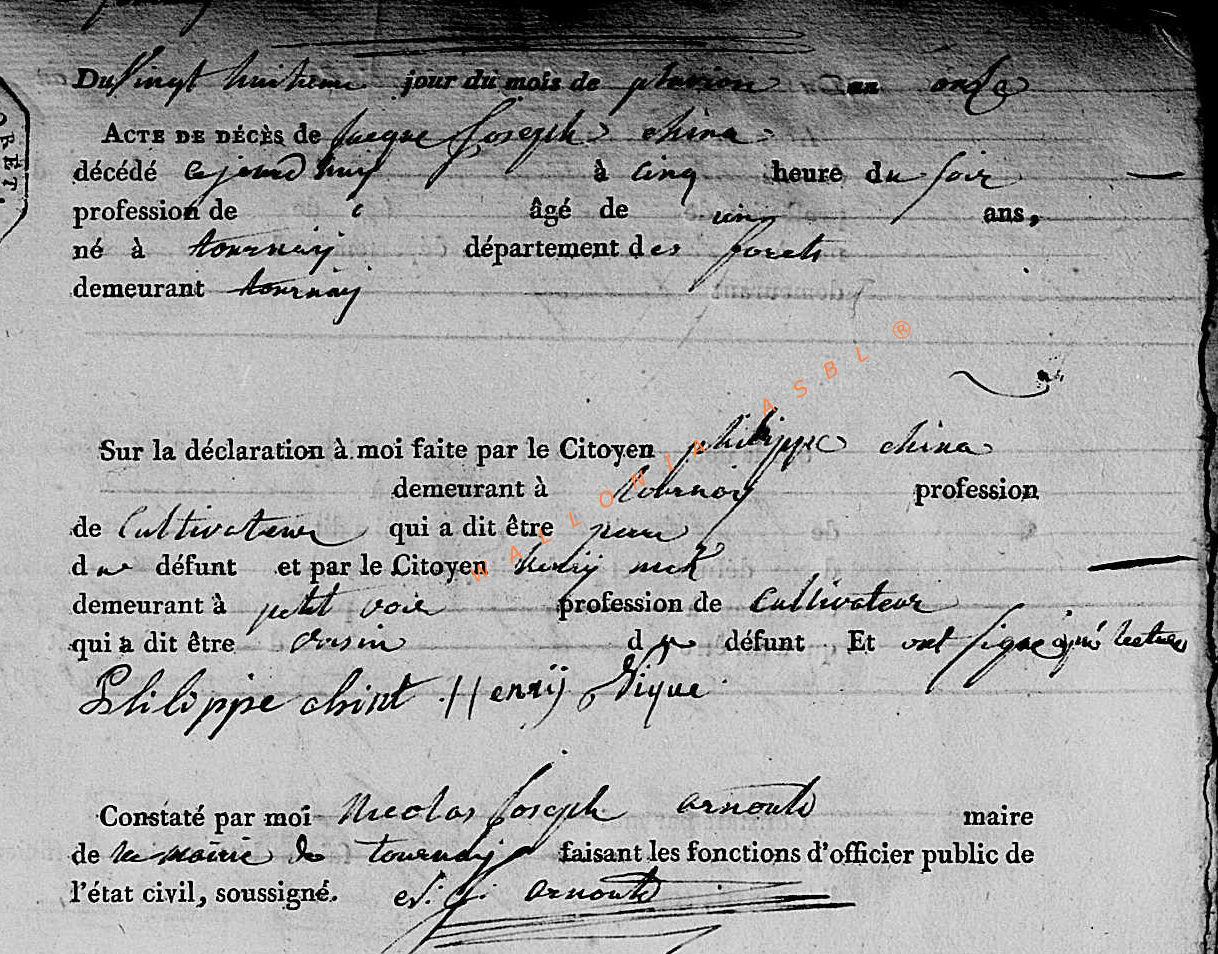 Du Vingt huitieme jour du mois de pluviose an onze
ACTE DE DÉCÈS de Jacque Joseph china
décédé cejourd'huy à cinq heure du soir
profession de âgé de cinq ans,
né à tournay département des forets
demeurant tournay
Sur la déclaration à moi faite par le Citoyen philippe china
demeurant à tournay profession
de Cultivateur qui a dit être pere
du défunt et par le Citoyen henry
demeurant à petit voir profession de Cultivateur
qui a dit être voisin du défunt Et ont signé après lecture
Philippe chint Henrij
Constaté par moi Nicolas Joseph arnould maire
de la mairie de tournay faisant les fonctions d'officier public de
l'état civil, soussigné. arnould
WALLONIA ASBL ®